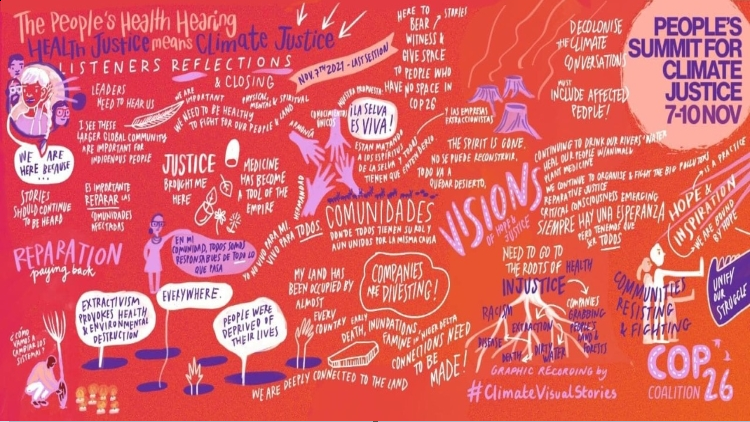 The People's Health Hearing
HEALTH JUSTICE means CLIMATE JUSTICE
LISTENERS REFLECTIONS
& CLOSING
NOV. 7TH 2021 - LAST SESSION
HERE TO
BEAR STORIES
WITNESS &
GIVE SPACE
TO PEOPLE WHO
HAVE NO SPACE IN
COP 26
DECOLONISE
THE CLIMATE
CONVERSATIONS
MUST
INCLUDE AFFECTED
PEOPLE!
PEOPLE'S
SUMMIT FOR
CLIMATE
JUSTICE
7-10 NOV
LEADERS
NEED TO HEAR US
I SEE THESE
LARGER GLOBAL COMMUNITY
ARE IMPORTANT FOR
INDIGENOUS PEOPLE
WE ARE
IMPORTANT
PHYSICAL,
MENTAL & SPIRITUAL
WE NEED TO BE HEALTHY
TO FIGHT FOR OUR PEOPLE & LAND
WE ARE
HERE BECAUSE
...
STORIES
SHOULD CONTINUE
TO BE HEARD
ES IMPORTANTE
REPARAR LAS
COMUNIDADES
AFECTADAS
JUSTICE
BROUGHT ME
HERE
MEDICINE
HAS BECOME
A TOOL OF THE
EMPIRE
NUESTRA PROPUESTA
¡LA SELVA
ES VIVA!
CONOCIMIENTOS
ARMONÍA
HERMANDAD
ESTAN MATANDO
A LOS ESPIRITUS
DE LA SELVA Y TODOS
TIENEN QUE ENTENDERLO
Y LAS EMPRESAS
EXTRACCIONISTAS
THE SPIRIT IS GONE,
NO SE PUEDE RECONSTRUIR,
TODO VA A
QUEDAR DESIERTO,
COMUNIDADES
DONDE TODOS TIENEN SU ROL Y
AUN UNIDOS POR LA MISMA CAUSA
YO NO VIVO PARA MI,
VIVO PARA TODOS.
VISIONS
OF HOPE &
JUSTICE
CONTINUING TO DRINK OUR RIVERS' WATER
HEAL OUR PEOPLE W/ANIMAL &
PLANT MEDICINE
WE CONTINUE TO ORGANISE & FIGHT THE BIG POLLUTERS
REPARATIVE JUSTICE
CRITICAL CONSCIOUSNESS EMERGING
SIEMPRE HAY UNA ESPERANZA
PERO TENEMOS QUE
SER TODOS
IS A PRACTICE
HOPE &
INSPIRATION
WE ARE BOUND
BY HOPE
REPARATION
paying back
EN MI
COMUNIDAD, TODOS SOMOS
RESPONSABLES DE TODO LO
QUE PASA
EXTRACTIVISM
PROVOKES HEALTH
& ENVIRONMENTAL
DESTRUCTION
EVERYWHERE.
PEOPLE WERE
DEPRIVED OF
THEIR LIVES
MY LAND HAS
BEEN OCCUPIED BY
ALMOST
EVERY
COUNTRY
COMPANIES
ARE DIVESTING!
EARLY DEATH, INUNDATIONS,
FAMINE IN NIGER DELTA
CONNECTIONS NEED
TO BE
MADE!
WE ARE DEEPLY CONNECTED TO THE LAND
NEED TO GO TO
THE ROOTS OF HEALTH
INJUSTICE
RACISM
EXTRACTION
DISEASE
DEATH
DIRTY
WATER
COMPANIES
GRABBING
PEOPLE'S
LAND &
FORESTS
COMMUNITIES
RESISTING
& FIGHTING
UNIFY
OUR
STRUGGLE
¿CÓMO
VAMOS A
CAMBIAR LOS
SISTEMAS?
GRAPHIC RECORDING by
#ClimateVisualStories
COP
COALITION 26